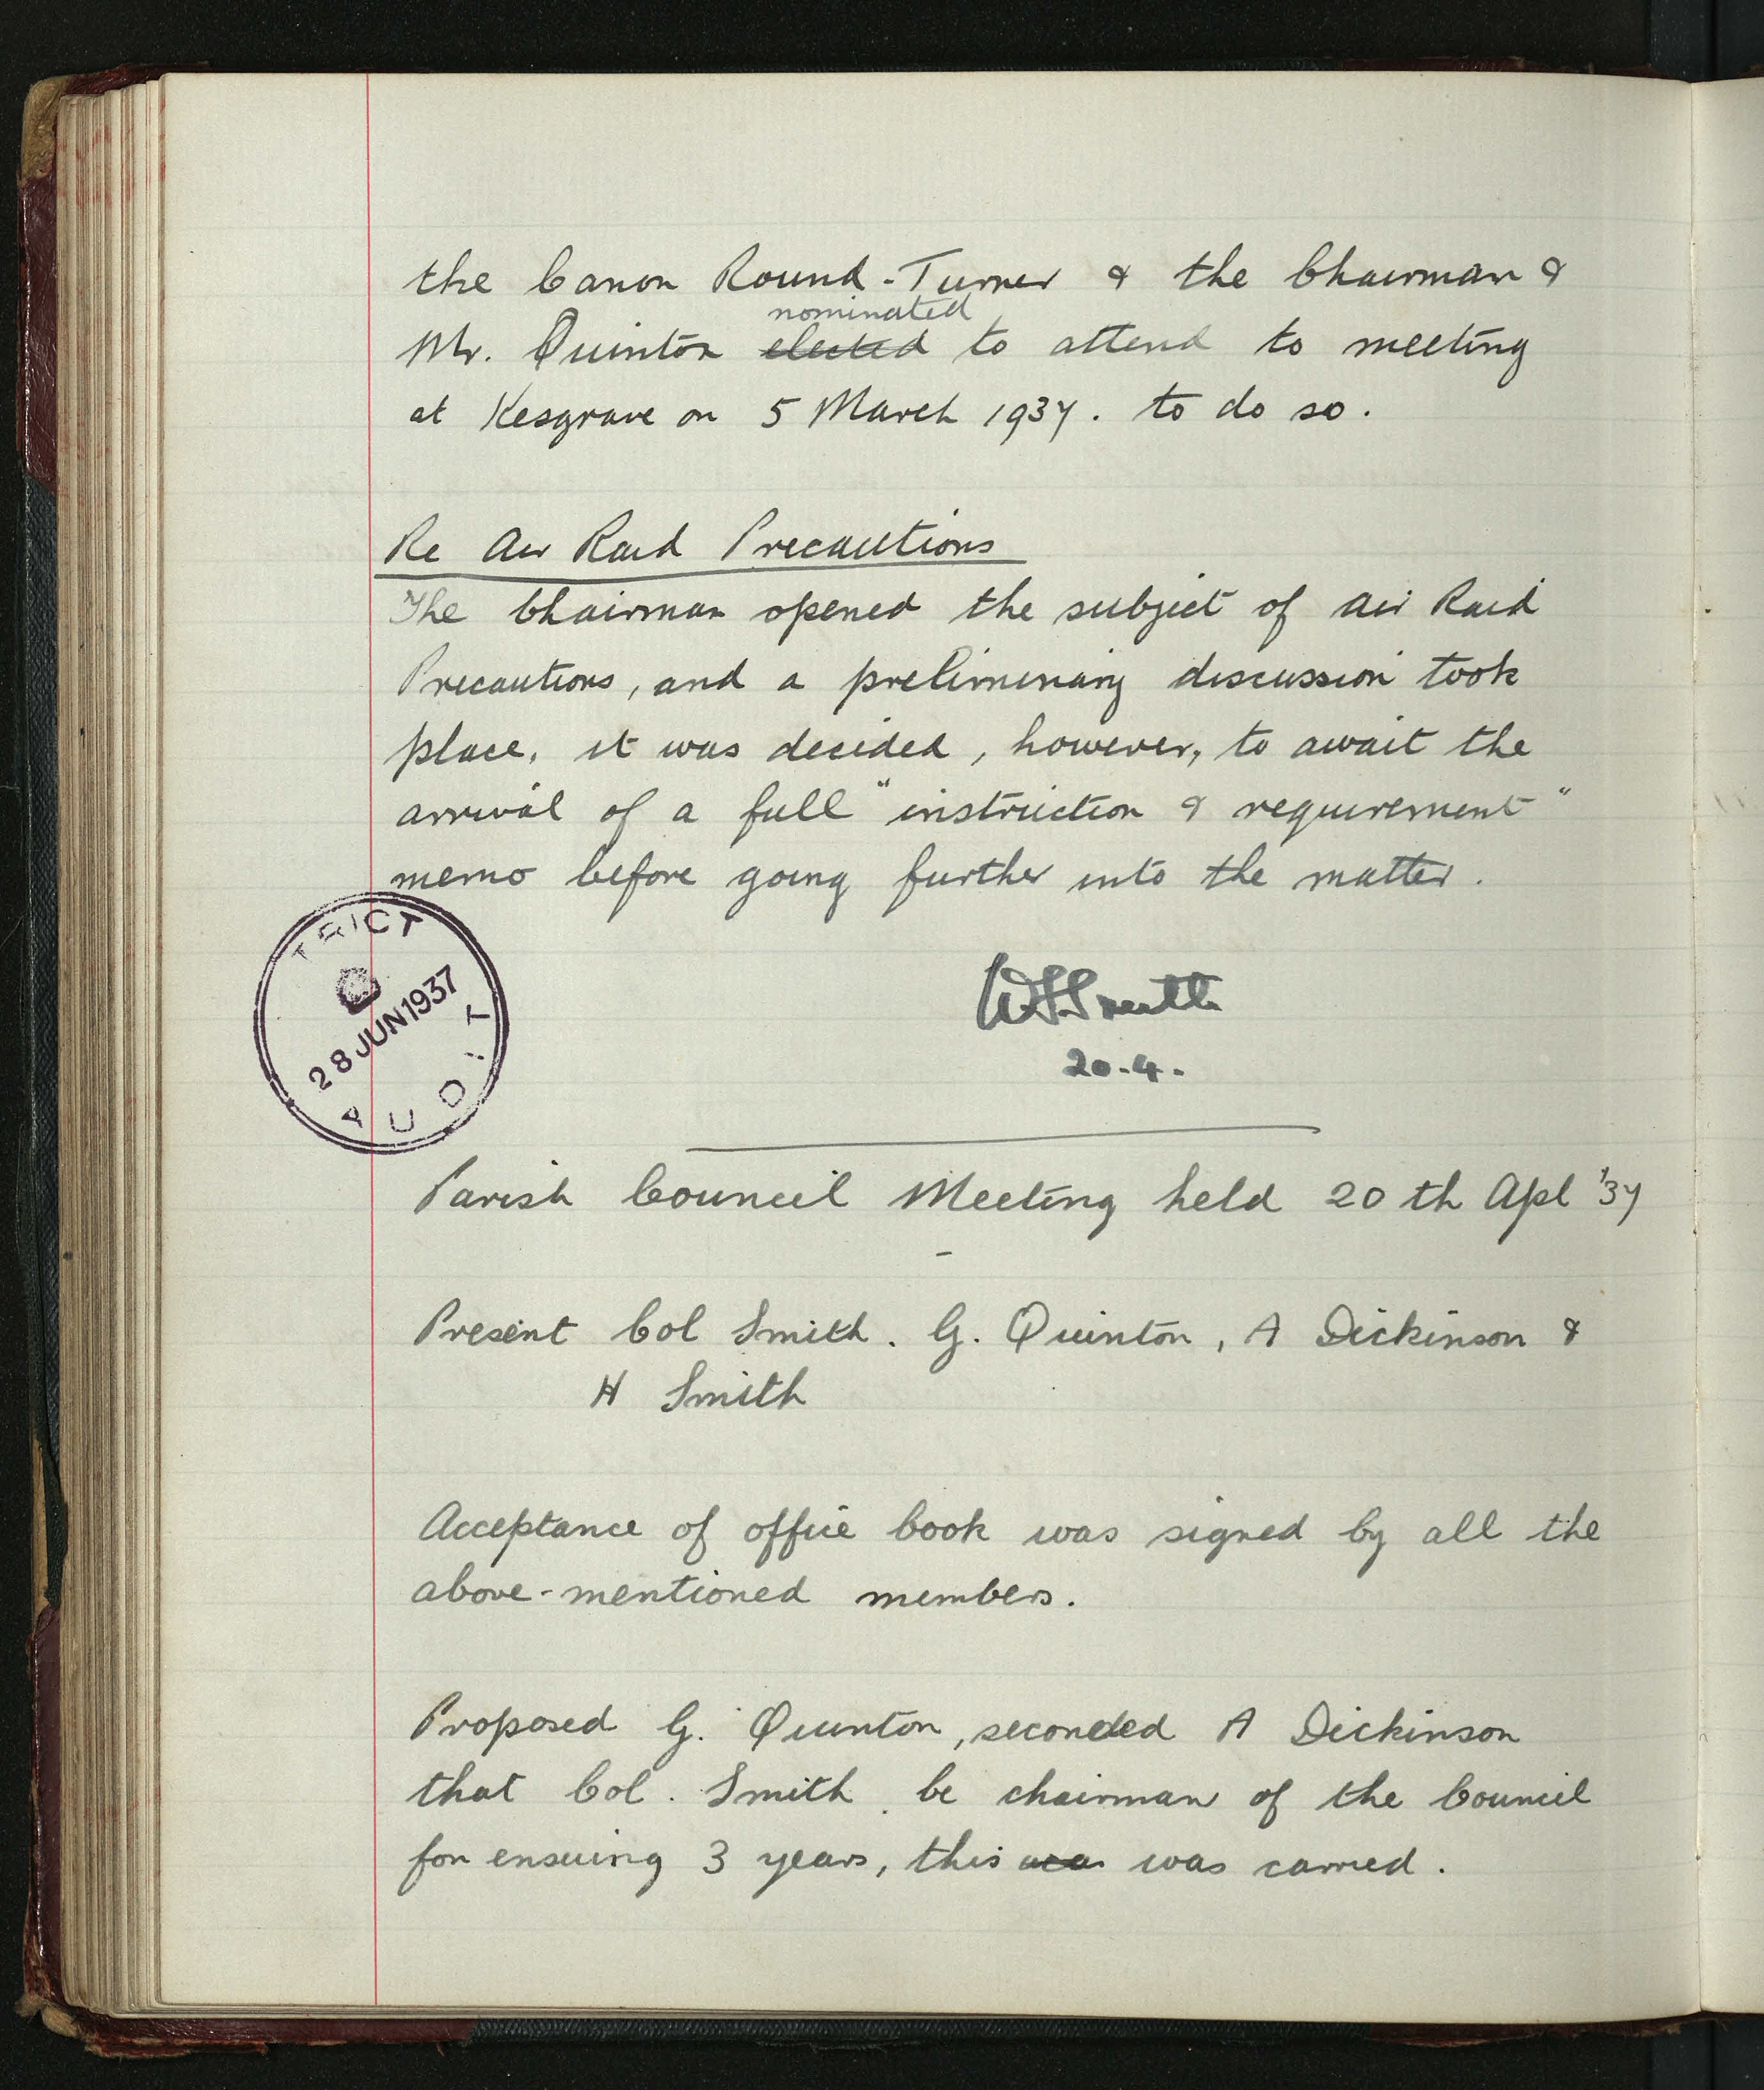 the Canon Round-Turner & the Chairman &
nominated
Mr. Quinton elected to attend to meeting
at Kesgrave on 5 March 1937. to do so.
Re Air Raid Precautions
The Chairman opened the subject of Air Raid
Precautions, and a preliminary discussion took
place, it was decided, however, to await the
arrival of a full "instruction & requirement"
memo before going further into the matter.
TRICT
28 JUN 1937
AUDIT
Smith
20.4.
Parish Council Meeting held 20th Apl '37
Present Col Smith. G. Quinton, A Dickinson &
H Smith
Acceptance of office book was signed by all the
above-mentioned members.
Proposed G. Quinton, seconded A Dickinson
that Col. Smith be chairman of the Council
for ensuing 3 years, this was was carried.